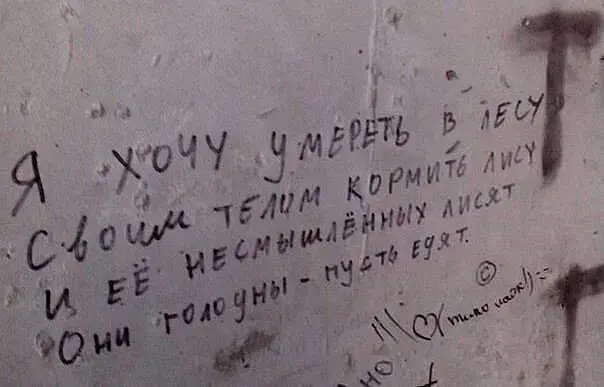 Я ХОЧУ УМЕРЕТЬ В ЛЕСУ
СВОИМ ТЕЛОМ КОРМИТЬ ЛИСУ
И ЕЁ НЕСМЫШЛЁННЫХ ЛИСЯТ
ОНИ ГОЛОДНЫ - ПУСТЬ ЕДЯТ.
©
НО